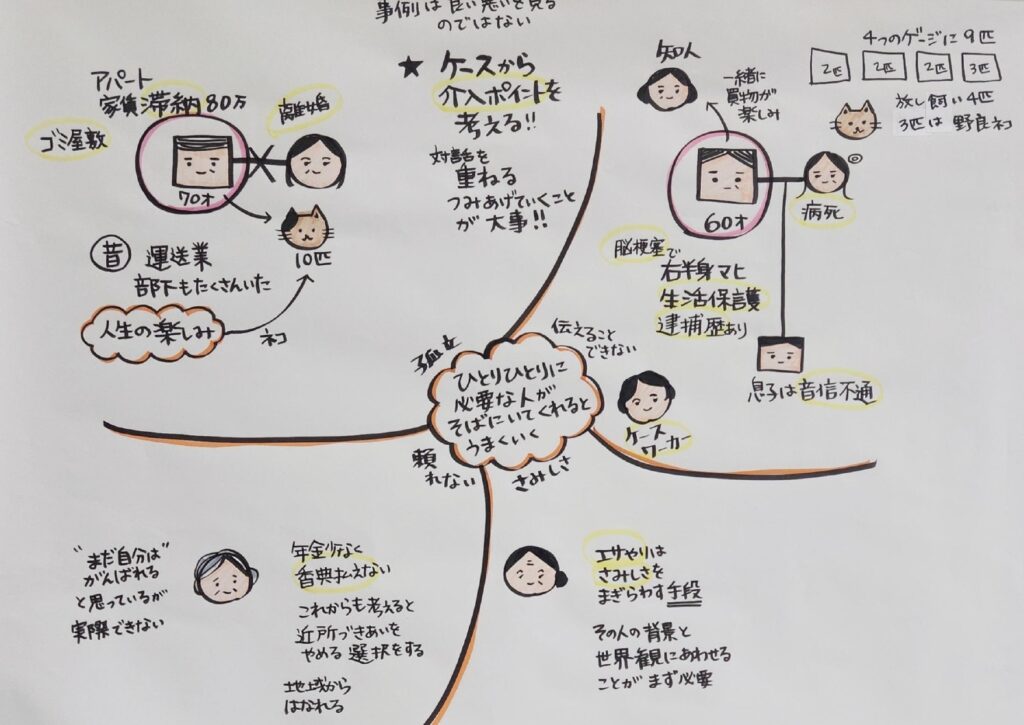 事例は良い悪いを見る
のではない
★ ケースから
介入ポイントを
考える!!
対話を
重ねる
つみあげていくこと
が大事!!
アパート
家賃滞納80万
ゴミ屋敷
離婚
70才
10匹
昔 運送業
部下もたくさんいた
人生の楽しみ
ネコ
知人
一緒に
買物が
楽しみ
4つのゲージに9匹
2匹 2匹 2匹 3匹
放し飼い4匹
3匹は野良ネコ
60才
病死
脳梗塞で
右半身マヒ
生活保護
逮捕歴あり
息子は音信不通
ケース
ワーカー
孤立
伝えること
できない
ひとりひとりに
必要な人が
そばにいてくれると
うまくいく
頼
れない
さみしさ
"まだ自分は"
がんばれる
と思っているが
実際できない
年金少なく
香典払えない
これからも考えると
近所づきあいを
やめる選択をする
地域から
はなれる
エサやりは
さみしさを
まぎらわす手段
その人の背景と
世界観にあわせる
ことがまず必要